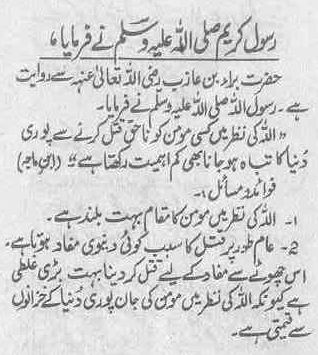 رسول کریم صلی اللہ علیہ وسلم نے فرمایا،
حضرت براء بن عازب رضی اللہ تعالیٰ عنہ سے روایت
ہے۔ رسول اللہ صلی اللہ علیہ وسلم نے فرمایا۔
"اللہ کی نظر میں کسی مؤمن کو ناحق قتل کرنے سے پوری
دُنیا کا تباہ ہو جانا بھی کم اہمیت رکھتا ہے" (ابن ماجہ)
فوائد و مسائل:۔
1۔ اللہ کی نظر میں مومن کا مقام بہت بلند ہے۔
2۔ عام طور پر قتل کا سبب کوئی دنیوی مفاد ہوتا ہے۔
اس چھوٹے سے مفاد کے لیے قتل کر دینا بہت بڑی غلطی
ہے کیونکہ اللہ کی نظر میں مومن کی جان پوری دُنیا کے خزانوں
سے قیمتی ہے۔